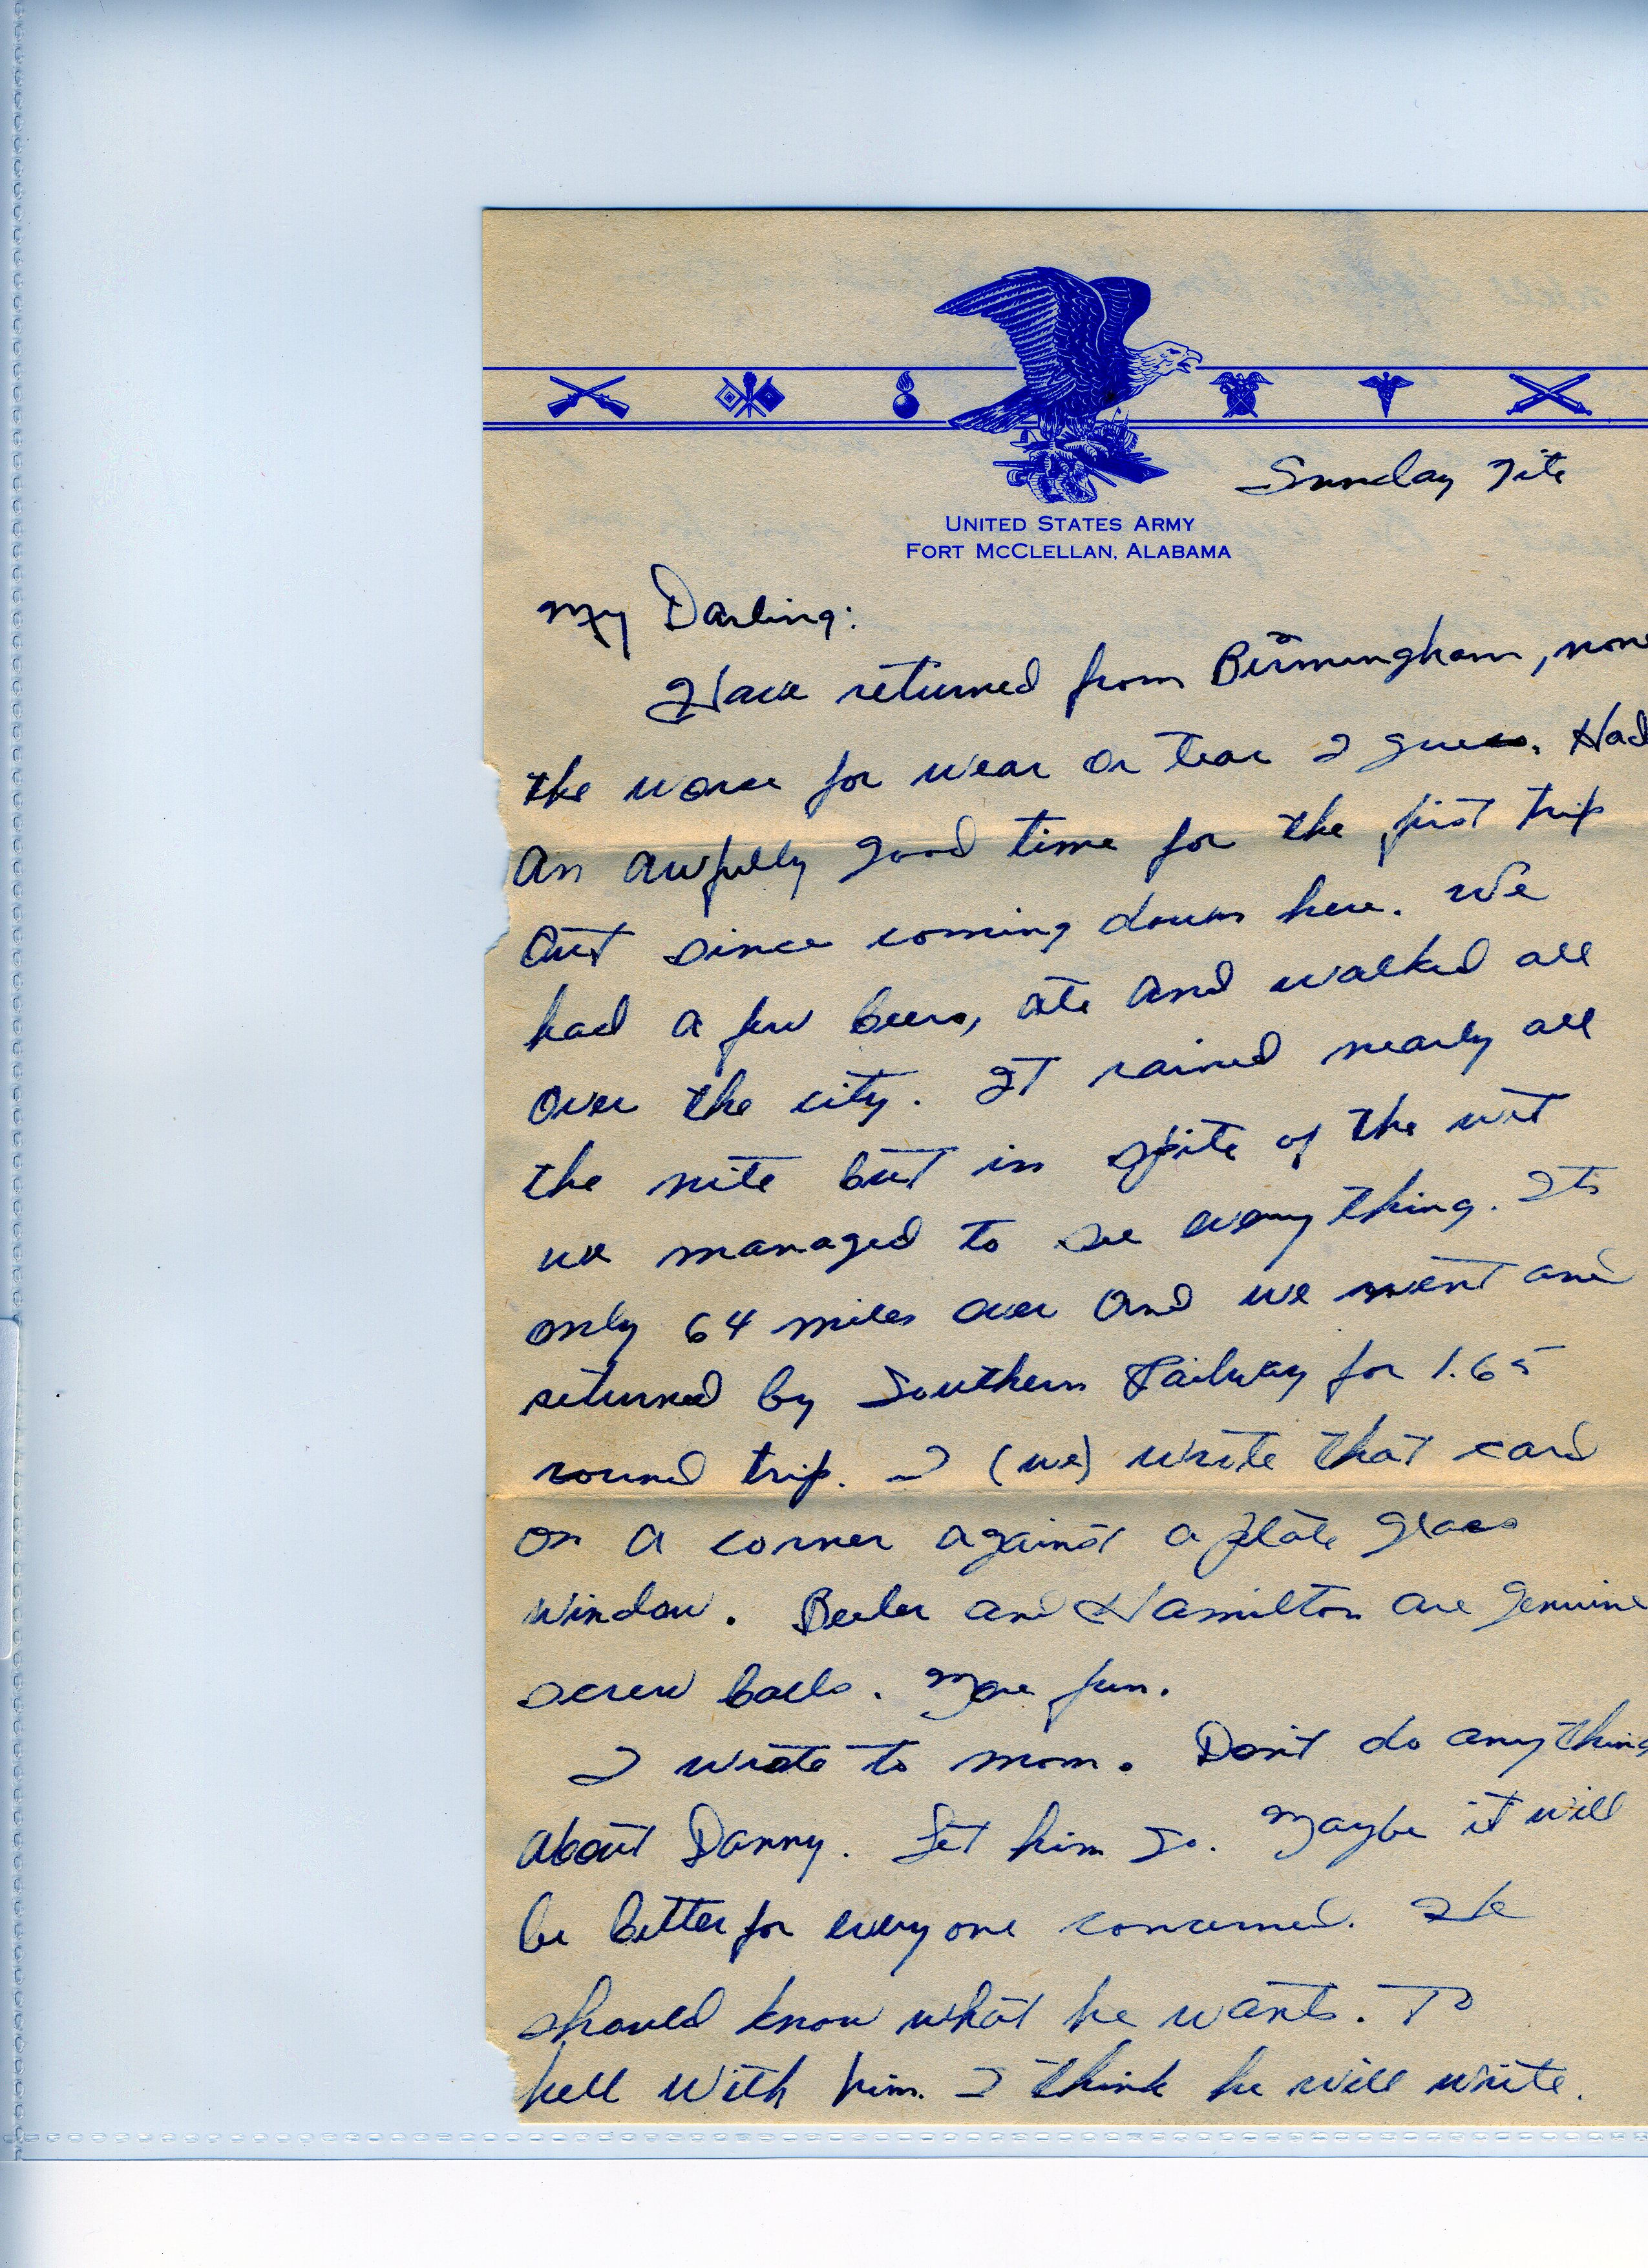 Sunday Nite
UNITED STATES ARMY
FORT MCCLELLAN, ALABAMA
My Darling:
Have returned from Birmingham, none
the worse for wear or tear I guess. Had
an awfully good time for the first trip
out since coming down here. We
had a few beers, ate and walked all
over the city. It rained nearly all
the nite but in spite of the wet
we managed to see everything. Its
only 64 miles over and we went and
returned by Southern Railway for 1.65
round trip. I (we) write that card
on a corner against a plate glass
window. Beeler and Hamilton are genuine
screw balls. More fun.
I wrote to mom. Don't do anything
about Danny. Let him go. Maybe it will
be better for everyone concerned. He
should know what he wants. To
hell with him. I think he will write.